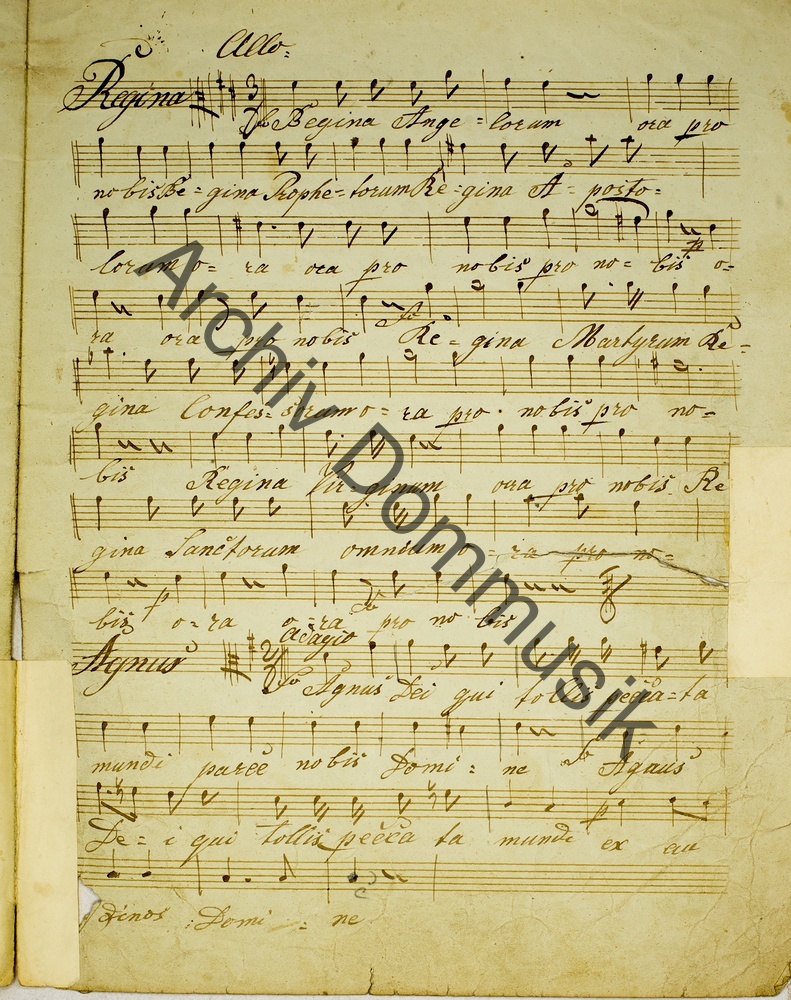 Allo:
Regina
Regina Ange = lorum ora pro
nobis Re = gina Prophe = torum Re = gina A = posto =
lorum o = ra ora pro nobis pro no = bis o =
ra ora pro nobis Re = gina Martyrum Re =
gina Confes = sorum o = ra pro nobis pro no =
bis Regina Vir = ginum ora pro nobis Re
gina Sanctorum omnium o = ra pro no =
bis o = ra o = ra pro no bis
Adagio
Agnus
Agnus Dei qui tollis pecca = ta
mundi parce nobis Domi = ne Agnus
De = i qui tollis pecca ta mundi ex au
dinos Domi = ne
Archiv Dommusik